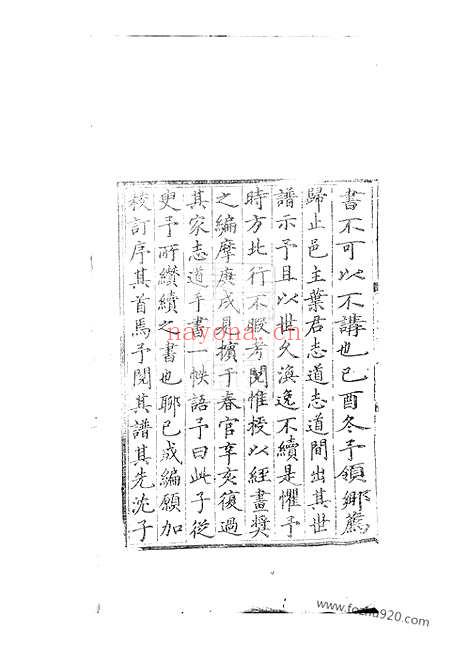 書不可以不講也己酉冬予領鄉薦
歸止邑主葉君志道志道間出其世
譜示予且以世久湮逸不續是懼予
時方北行不暇考閱惟授以經畫獎
之編摩庚戌見擯于春官辛亥復過
其家志道手書一帙語予曰此子從
更予所纘續之書也聊已成編願加
校訂序其首焉予閱其譜其先沈子
nayona.cn
www.fozhu920.com